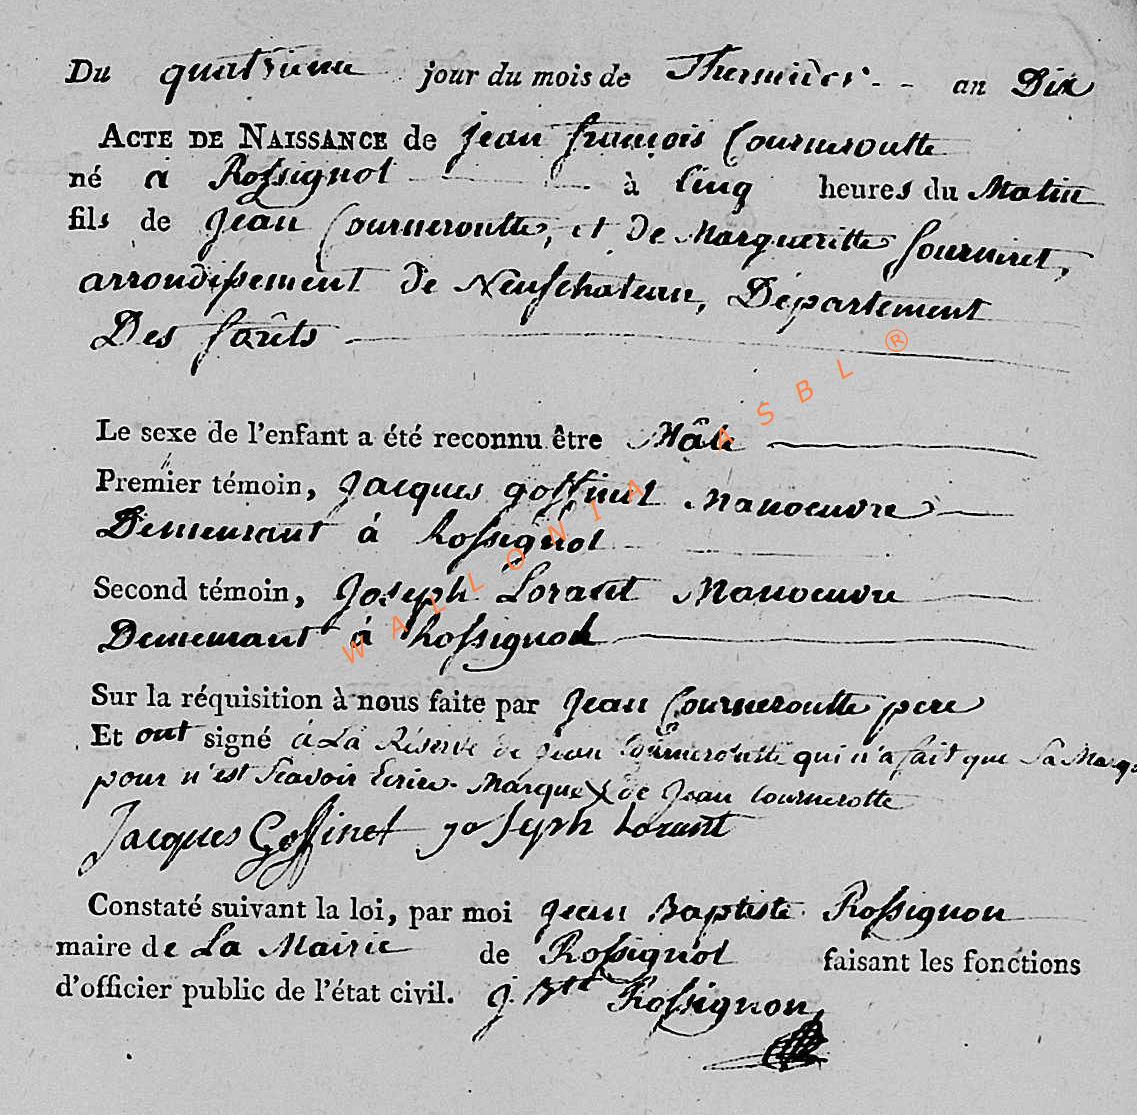 Du quatrieme jour du mois de Thermidor - - an Dix
ACTE DE NAISSANCE de Jean françois Courneroutte
né a Rossignol à Cinq heures du Matin
fils de Jean Courneroutte, et De Margueritte fourniret,
arrondissement de Neufchateau, Département
Des forêts
Le sexe de l'enfant a été reconnu être Mâle
Premier témoin, Jacques goffinet Manoeuvre
Demeurant á Rossignol
Second témoin, Joseph Lorant Manoeuvre
Demeurant á Rossignol
Sur la réquisition à nous faite par Jean Courneroutte pere
Et ont signé á La Réserve de Jean Courneroutte qui n'a fait que Sa Marq
pour n'est Scavoir Ecrire. Marque X de Jean Cournerotte
Jacques Goffinet joseph Lorant
Constaté suivant la loi, par moi Jean Baptiste Rossignon
maire de La Mairie de Rossignol faisant les fonctions
d'officier public de l'état civil. J. Btte Rossignon
WALLONIA ASBL ®